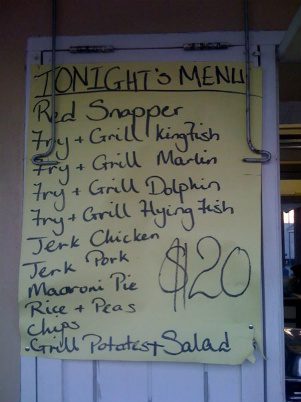 TONIGHT'S MENU
Red Snapper
Fry + Grill Kingfish
Fry + Grill Marlin
Fry + Grill Dolphin
Fry + Grill Flying Fish
Jerk Chicken
Jerk Pork
Macaroni Pie
Rice + Peas
Chips
Grill Potates + Salad
$20